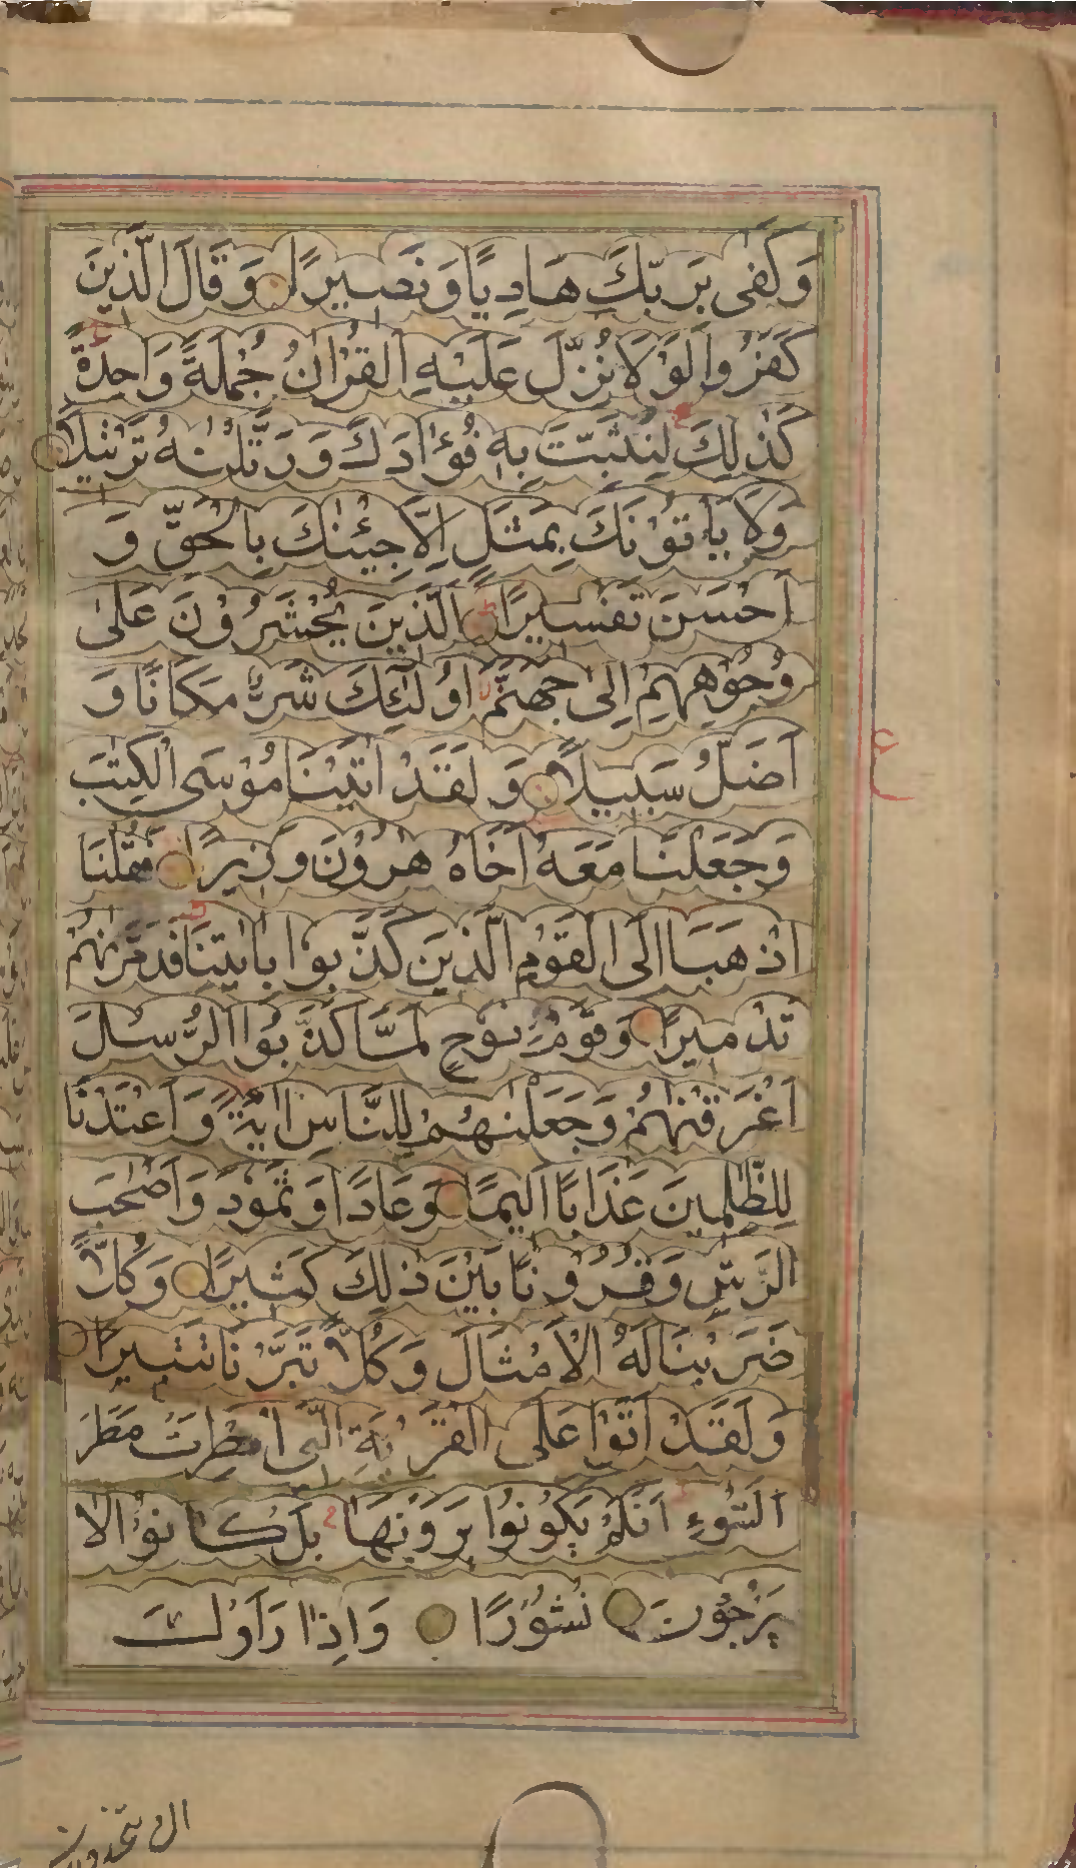 وَكَفٰى بِرَبِّكَ هَادِيًا وَنَصِيرًا وَقَالَ الَّذِينَ
كَفَرُوا لَوْلَا نُزِّلَ عَلَيْهِ الْقُرْاٰنُ جُمْلَةً وَاحِدَةً
كَذٰلِكَ لِنُثَبِّتَ بِهٖ فُؤَادَكَ وَرَتَّلْنٰهُ تَرْتِيلًا
وَلَا يَأْتُوْنَكَ بِمَثَلٍ اِلَّا جِئْنٰكَ بِالْحَقِّ وَ
اَحْسَنَ تَفْسِيرًا اَلَّذِينَ يُحْشَرُوْنَ عَلٰى
وُجُوْهِهِمْ اِلٰى جَهَنَّمَ اُولٰئِكَ شَرٌّ مَكَانًا وَ
اَضَلُّ سَبِيلًا وَلَقَدْ اٰتَيْنَا مُوْسَى الْكِتٰبَ
وَجَعَلْنَا مَعَهُ اَخَاهُ هٰرُوْنَ وَزِيرًا فَقُلْنَا
اذْهَبَا اِلَى الْقَوْمِ الَّذِينَ كَذَّبُوْا بِاٰيٰتِنَا فَدَمَّرْنٰهُمْ
تَدْمِيرًا وَقَوْمَ نُوْحٍ لَمَّا كَذَّبُوا الرُّسُلَ
اَغْرَقْنٰهُمْ وَجَعَلْنٰهُمْ لِلنَّاسِ اٰيَةً وَاَعْتَدْنَا
لِلظّٰلِمِينَ عَذَابًا اَلِيمًا وَعَادًا وَثَمُوْدَ وَاَصْحٰبَ
الرَّسِّ وَقُرُوْنًا بَيْنَ ذٰلِكَ كَثِيرًا وَكُلًّا
ضَرَبْنَا لَهُ الْاَمْثَالَ وَكُلًّا تَبَّرْنَا تَتْبِيرًا
وَلَقَدْ اَتَوْا عَلَى الْقَرْيَةِ الَّتِى اُمْطِرَتْ مَطَرَ
السَّوْءِ اَفَلَمْ يَكُوْنُوْا يَرَوْنَهَا بَلْ كَانُوْا لَا
يَرْجُوْنَ نُشُوْرًا وَاِذَا رَاَوْكَ
ع
ان يتخذونك